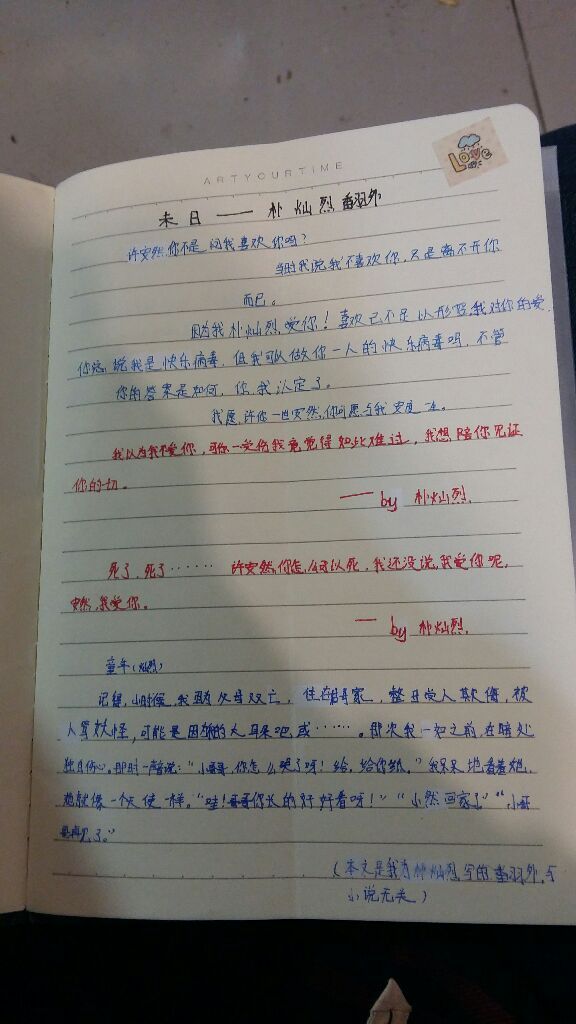 Love
ARTYOURTIME
末日 —— 朴灿烈番外
许安然,你不是问我喜欢你吗?
当时我说我不喜欢你,只是离不开你
而已。
因为我朴灿烈,爱你!喜欢已不足以形容,我对你的爱,
你总说我是快乐病毒,但我可以做你一人的快乐病毒吗,不管
你的答案是如何,你,我认定了。
我愿,许你一世安然,你可愿与我安度一生。
我以为我不爱你,可你一受伤我竟觉得如此难过,我想陪你见证
你的一切。
—— by 朴灿烈.
死了,死了······ 许安然,你怎么可以死,我还没说,我爱你呢,
安然,我爱你。
— by 朴灿烈.
童年(灿烈)
记得,小时候,我因为父母双亡,住在哥家,整日受人欺侮,被
人骂妖怪,可能是因为的大耳朵吧,或······。那次我一如之前,在暗处
独自伤心。那时一声说:"小哥哥,你怎么哭了呀!给,给你纸。"我呆呆地看着她,
她就像一个天使一样。"哇!哥哥你长的好好看呀!""小然回家了""小哥
哥再见了。"
(本文是我为朴灿烈,写的番外,与
小说无关)